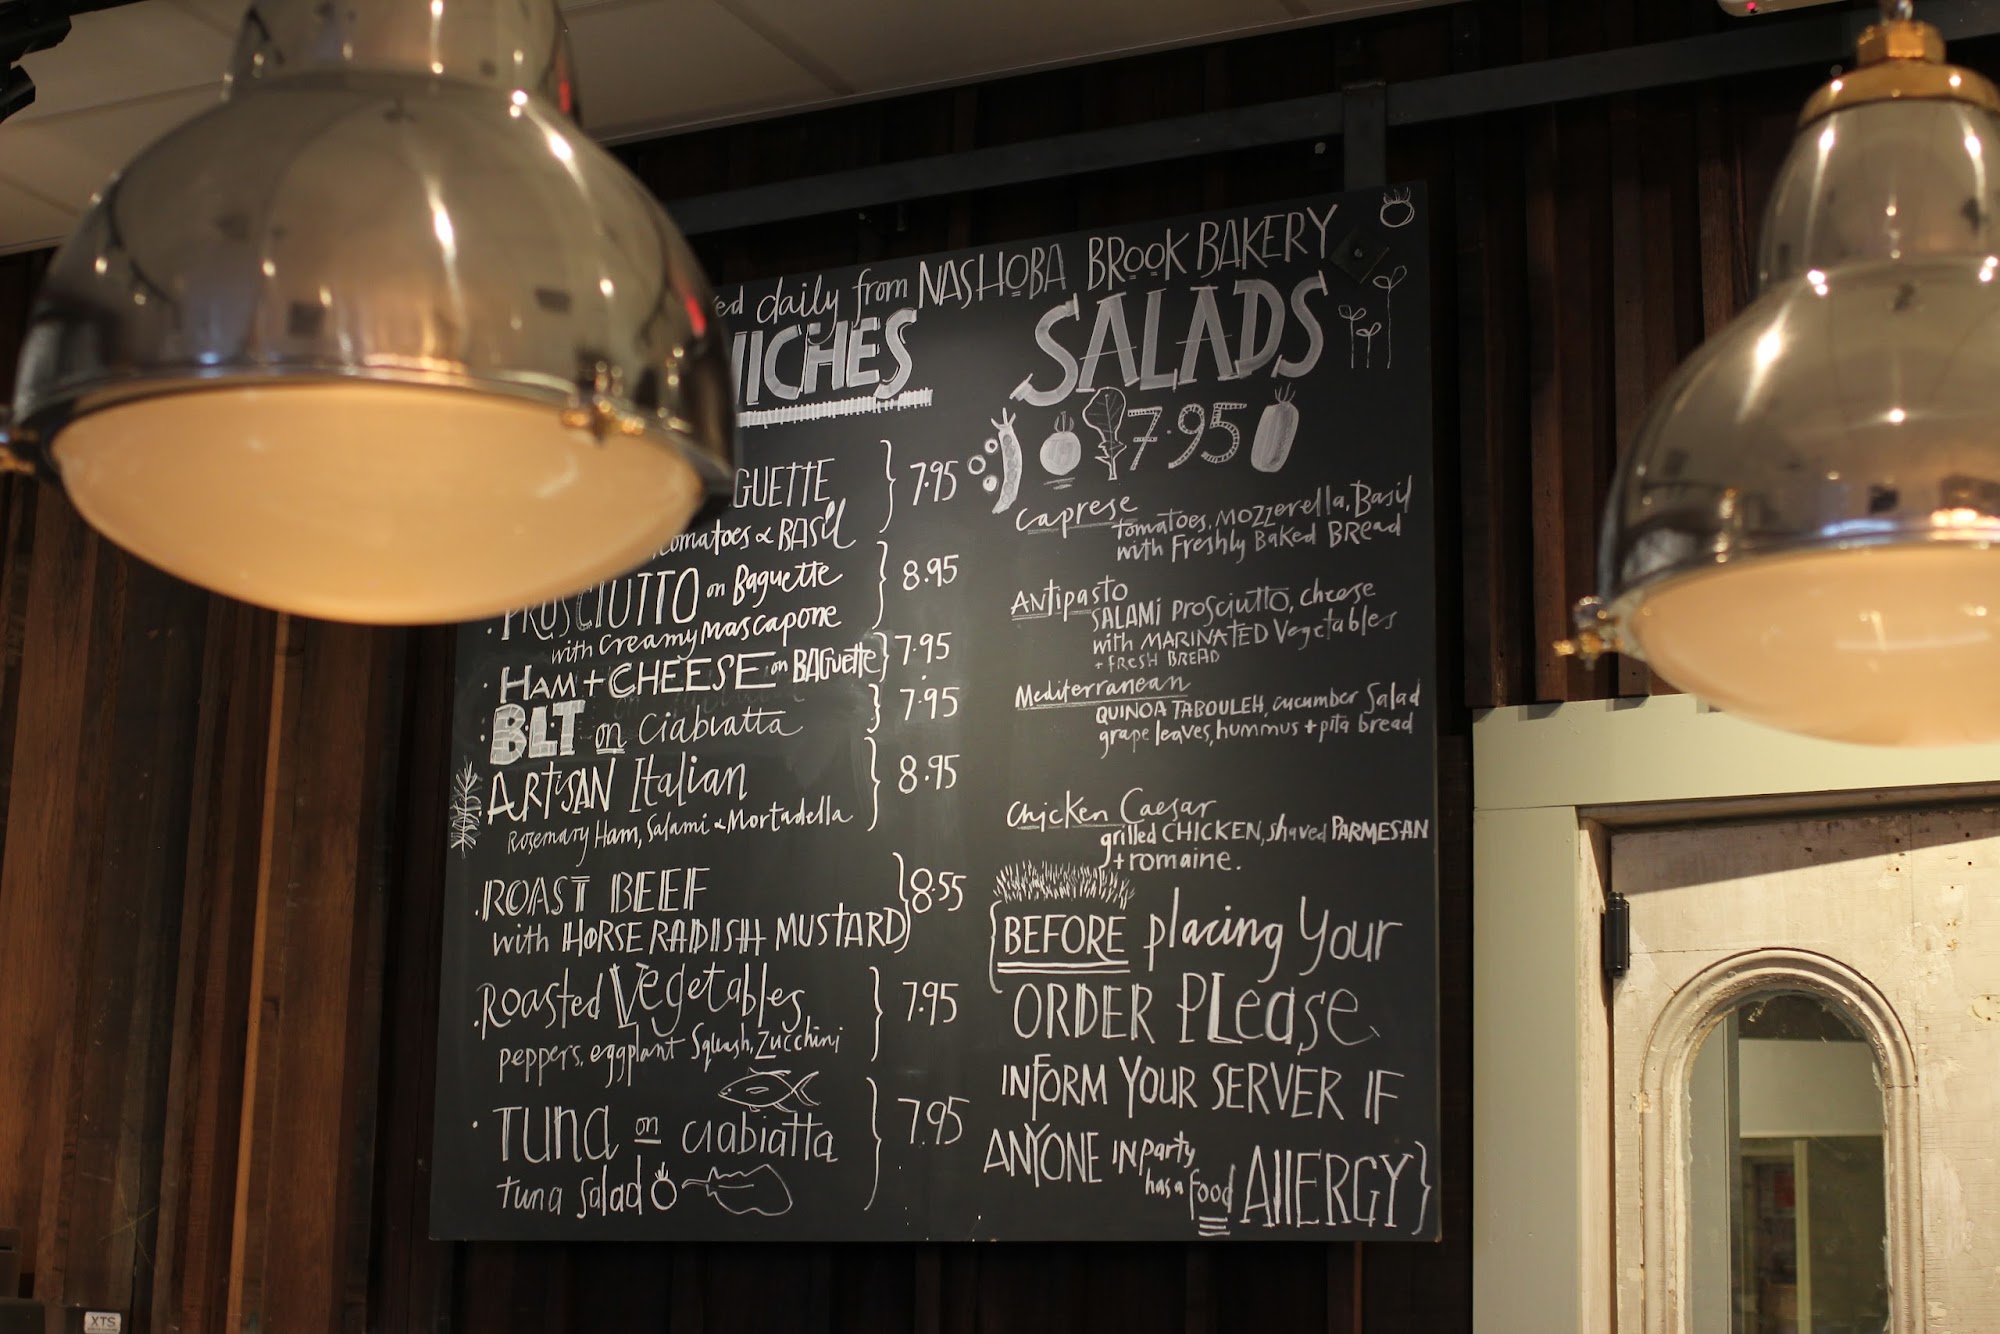 daily from NASHOBA BROOK BAKERY
SALADS
7.95
7.95
tomatoes & BASIL
PROSCIUTTO on Baguette } 8.95
with Creamy Mascapone
· HAM + CHEESE on BAGuette } 7.95
· BLT on Ciabiatta } 7.95
ARTISAN Italian } 8.95
Rosemary Ham, Salami & Mortadella
· ROAST BEEF } 8.55
with HORSE RADISH MUSTARD
· Roasted Vegetables } 7.95
peppers, eggplant Squash, Zucchini
· Tuna on Ciabiatta } 7.95
tuna salad
Caprese
tomatoes, Mozzerella, Basil
with Freshly Baked BREad
Antipasto
SALAMI Prosciutto, cheese
with MARINATED Vegetables
+ FRESH BREAD
Mediterranean
QUINOA TABOULEH, cucumber Salad
grape leaves, hummus + pita bread
Chicken Caesar
grilled CHICKEN, shaved PARMESAN
+ romaine.
{ BEFORE placing Your
ORDER PLease
INFORM YOUR SERVER IF
ANYONE IN party
has a food ALLERGY }
XTS